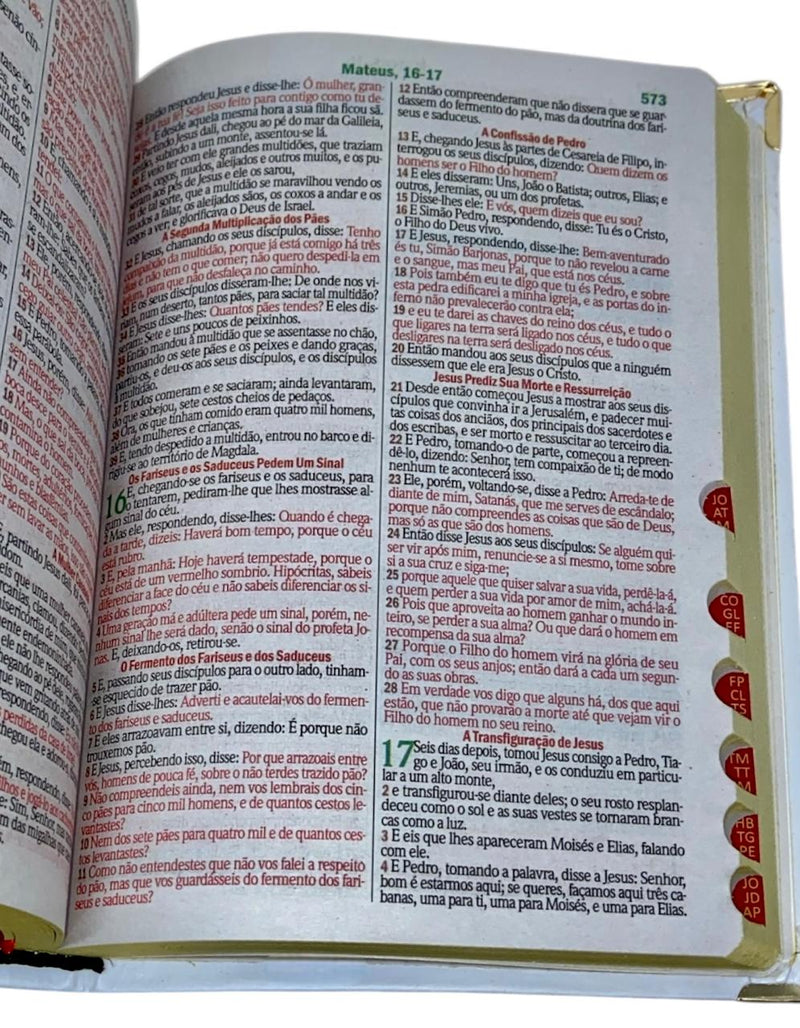 Mateus, 16-17
573
28 Então respondeu Jesus e disse-lhe: Ó mulher, gran-
de é a tua fé! Seja isso feito para contigo como tu de-
E desde aquela mesma hora a sua filha ficou sã.
29 Partindo Jesus dali, chegou ao pé do mar da Galileia,
subindo a um monte, assentou-se lá.
30 E veio ter com ele grandes multidões, que traziam
coxos, cegos, mudos, aleijados e outros muitos, e os pu-
aos pés de Jesus e ele os sarou,
31 de tal sorte, que a multidão se maravilhou vendo os
mudos a falar, os aleijados sãos, os coxos a andar e os
cegos a ver; e glorificava o Deus de Israel.
A Segunda Multiplicação dos Pães
32 E Jesus, chamando os seus discípulos, disse: Tenho
compaixão da multidão, porque já está comigo há três
dias e não tem o que comer; não quero despedi-la em
jejum, para que não desfaleça no caminho.
33 E os seus discípulos disseram-lhe: De onde nos vi-
riam, num deserto, tantos pães, para saciar tal multidão?
34 E Jesus disse-lhes: Quantos pães tendes? E eles dis-
seram: Sete e uns poucos de peixinhos.
35 Então mandou à multidão que se assentasse no chão,
36 e tomando os sete pães e os peixes e dando graças,
partiu-os, e deu-os aos seus discípulos, e os discípulos
à multidão.
37 E todos comeram e se saciaram; ainda levantaram,
do que sobejou, sete cestos cheios de pedaços.
38 Ora, os que tinham comido eram quatro mil homens,
além de mulheres e crianças.
39 E, tendo despedido a multidão, entrou no barco e di-
rigiu-se ao território de Magdala.
Os Fariseus e os Saduceus Pedem Um Sinal
16 E, chegando-se os fariseus e os saduceus, para
o tentarem, pediram-lhe que lhes mostrasse al-
gum sinal do céu.
2 Mas ele, respondendo, disse-lhes: Quando é chega-
da a tarde, dizeis: Haverá bom tempo, porque o céu
está rubro.
3 E, pela manhã: Hoje haverá tempestade, porque o
céu está de um vermelho sombrio. Hipócritas, sabeis
diferenciar a face do céu e não sabeis diferenciar os si-
nais dos tempos?
4 Uma geração má e adúltera pede um sinal, porém, ne-
nhum sinal lhe será dado, senão o sinal do profeta Jo-
nas. E, deixando-os, retirou-se.
O Fermento dos Fariseus e dos Saduceus
5 E, passando seus discípulos para o outro lado, tinham-
-se esquecido de trazer pão.
6 E Jesus disse-lhes: Adverti e acautelai-vos do fermen-
to dos fariseus e saduceus.
7 E eles arrazoavam entre si, dizendo: É porque não
trouxemos pão.
8 E Jesus, percebendo isso, disse: Por que arrazoais entre
vós, homens de pouca fé, sobre o não terdes trazido pão?
9 Não compreendeis ainda, nem vos lembrais dos cin-
co pães para cinco mil homens, e de quantos cestos le-
vantastes?
10 Nem dos sete pães para quatro mil e de quantos ces-
tos levantastes?
11 Como não entendestes que não vos falei a respeito
do pão, mas que vos guardásseis do fermento dos fari-
seus e saduceus?
12 Então compreenderam que não dissera que se guar-
dassem do fermento do pão, mas da doutrina dos fari-
seus e saduceus.
A Confissão de Pedro
13 E, chegando Jesus às partes de Cesareia de Filipo, in-
terrogou os seus discípulos, dizendo: Quem dizem os
homens ser o Filho do homem?
14 E eles disseram: Uns, João o Batista; outros, Elias; e
outros, Jeremias, ou um dos profetas.
15 Disse-lhes ele: E vós, quem dizeis que eu sou?
16 E Simão Pedro, respondendo, disse: Tu és o Cristo,
o Filho do Deus vivo.
17 E Jesus, respondendo, disse-lhe: Bem-aventurado
és tu, Simão Barjonas, porque to não revelou a carne
e o sangue, mas meu Pai, que está nos céus.
18 Pois também eu te digo que tu és Pedro, e sobre
esta pedra edificarei a minha igreja, e as portas do in-
ferno não prevalecerão contra ela;
19 e eu te darei as chaves do reino dos céus, e tudo o
que ligares na terra será ligado nos céus, e tudo o que
desligares na terra será desligado nos céus.
20 Então mandou aos seus discípulos que a ninguém
dissessem que ele era Jesus o Cristo.
Jesus Prediz Sua Morte e Ressurreição
21 Desde então começou Jesus a mostrar aos seus dis-
cípulos que convinha ir a Jerusalém, e padecer mui-
tas coisas dos anciãos, dos principais dos sacerdotes e
dos escribas, e ser morto e ressuscitar ao terceiro dia.
22 E Pedro, tomando-o de parte, começou a repreen-
dê-lo, dizendo: Senhor, tem compaixão de ti; de modo
nenhum te acontecerá isso.
23 Ele, porém, voltando-se, disse a Pedro: Arreda-te de
diante de mim, Satanás, que me serves de escândalo;
porque não compreendes as coisas que são de Deus,
mas só as que são dos homens.
24 Então disse Jesus aos seus discípulos: Se alguém qui-
ser vir após mim, renuncie-se a si mesmo, tome sobre
si a sua cruz e siga-me;
25 porque aquele que quiser salvar a sua vida, perdê-la-á,
e quem perder a sua vida por amor de mim, achá-la-á.
26 Pois que aproveita ao homem ganhar o mundo in-
teiro, se perder a sua alma? Ou que dará o homem em
recompensa da sua alma?
27 Porque o Filho do homem virá na glória de seu
Pai, com os seus anjos; então dará a cada um segun-
do as suas obras.
28 Em verdade vos digo que alguns há, dos que aqui
estão, que não provarão a morte até que vejam vir o
Filho do homem no seu reino.
A Transfiguração de Jesus
17 Seis dias depois, tomou Jesus consigo a Pedro, Tia-
go e João, seu irmão, e os conduziu em particu-
lar a um alto monte,
2 e transfigurou-se diante deles; o seu rosto resplan-
deceu como o sol e as suas vestes se tornaram bran-
cas como a luz.
3 E eis que lhes apareceram Moisés e Elias, falando
com ele.
4 E Pedro, tomando a palavra, disse a Jesus: Senhor,
bom é estarmos aqui; se queres, façamos aqui três ca-
banas, uma para ti, uma para Moisés, e uma para Elias.
JO
AT
CO
GL
EF
FP
CL
TS
TM
TT
HB
TG
PE
JO
JD
AP